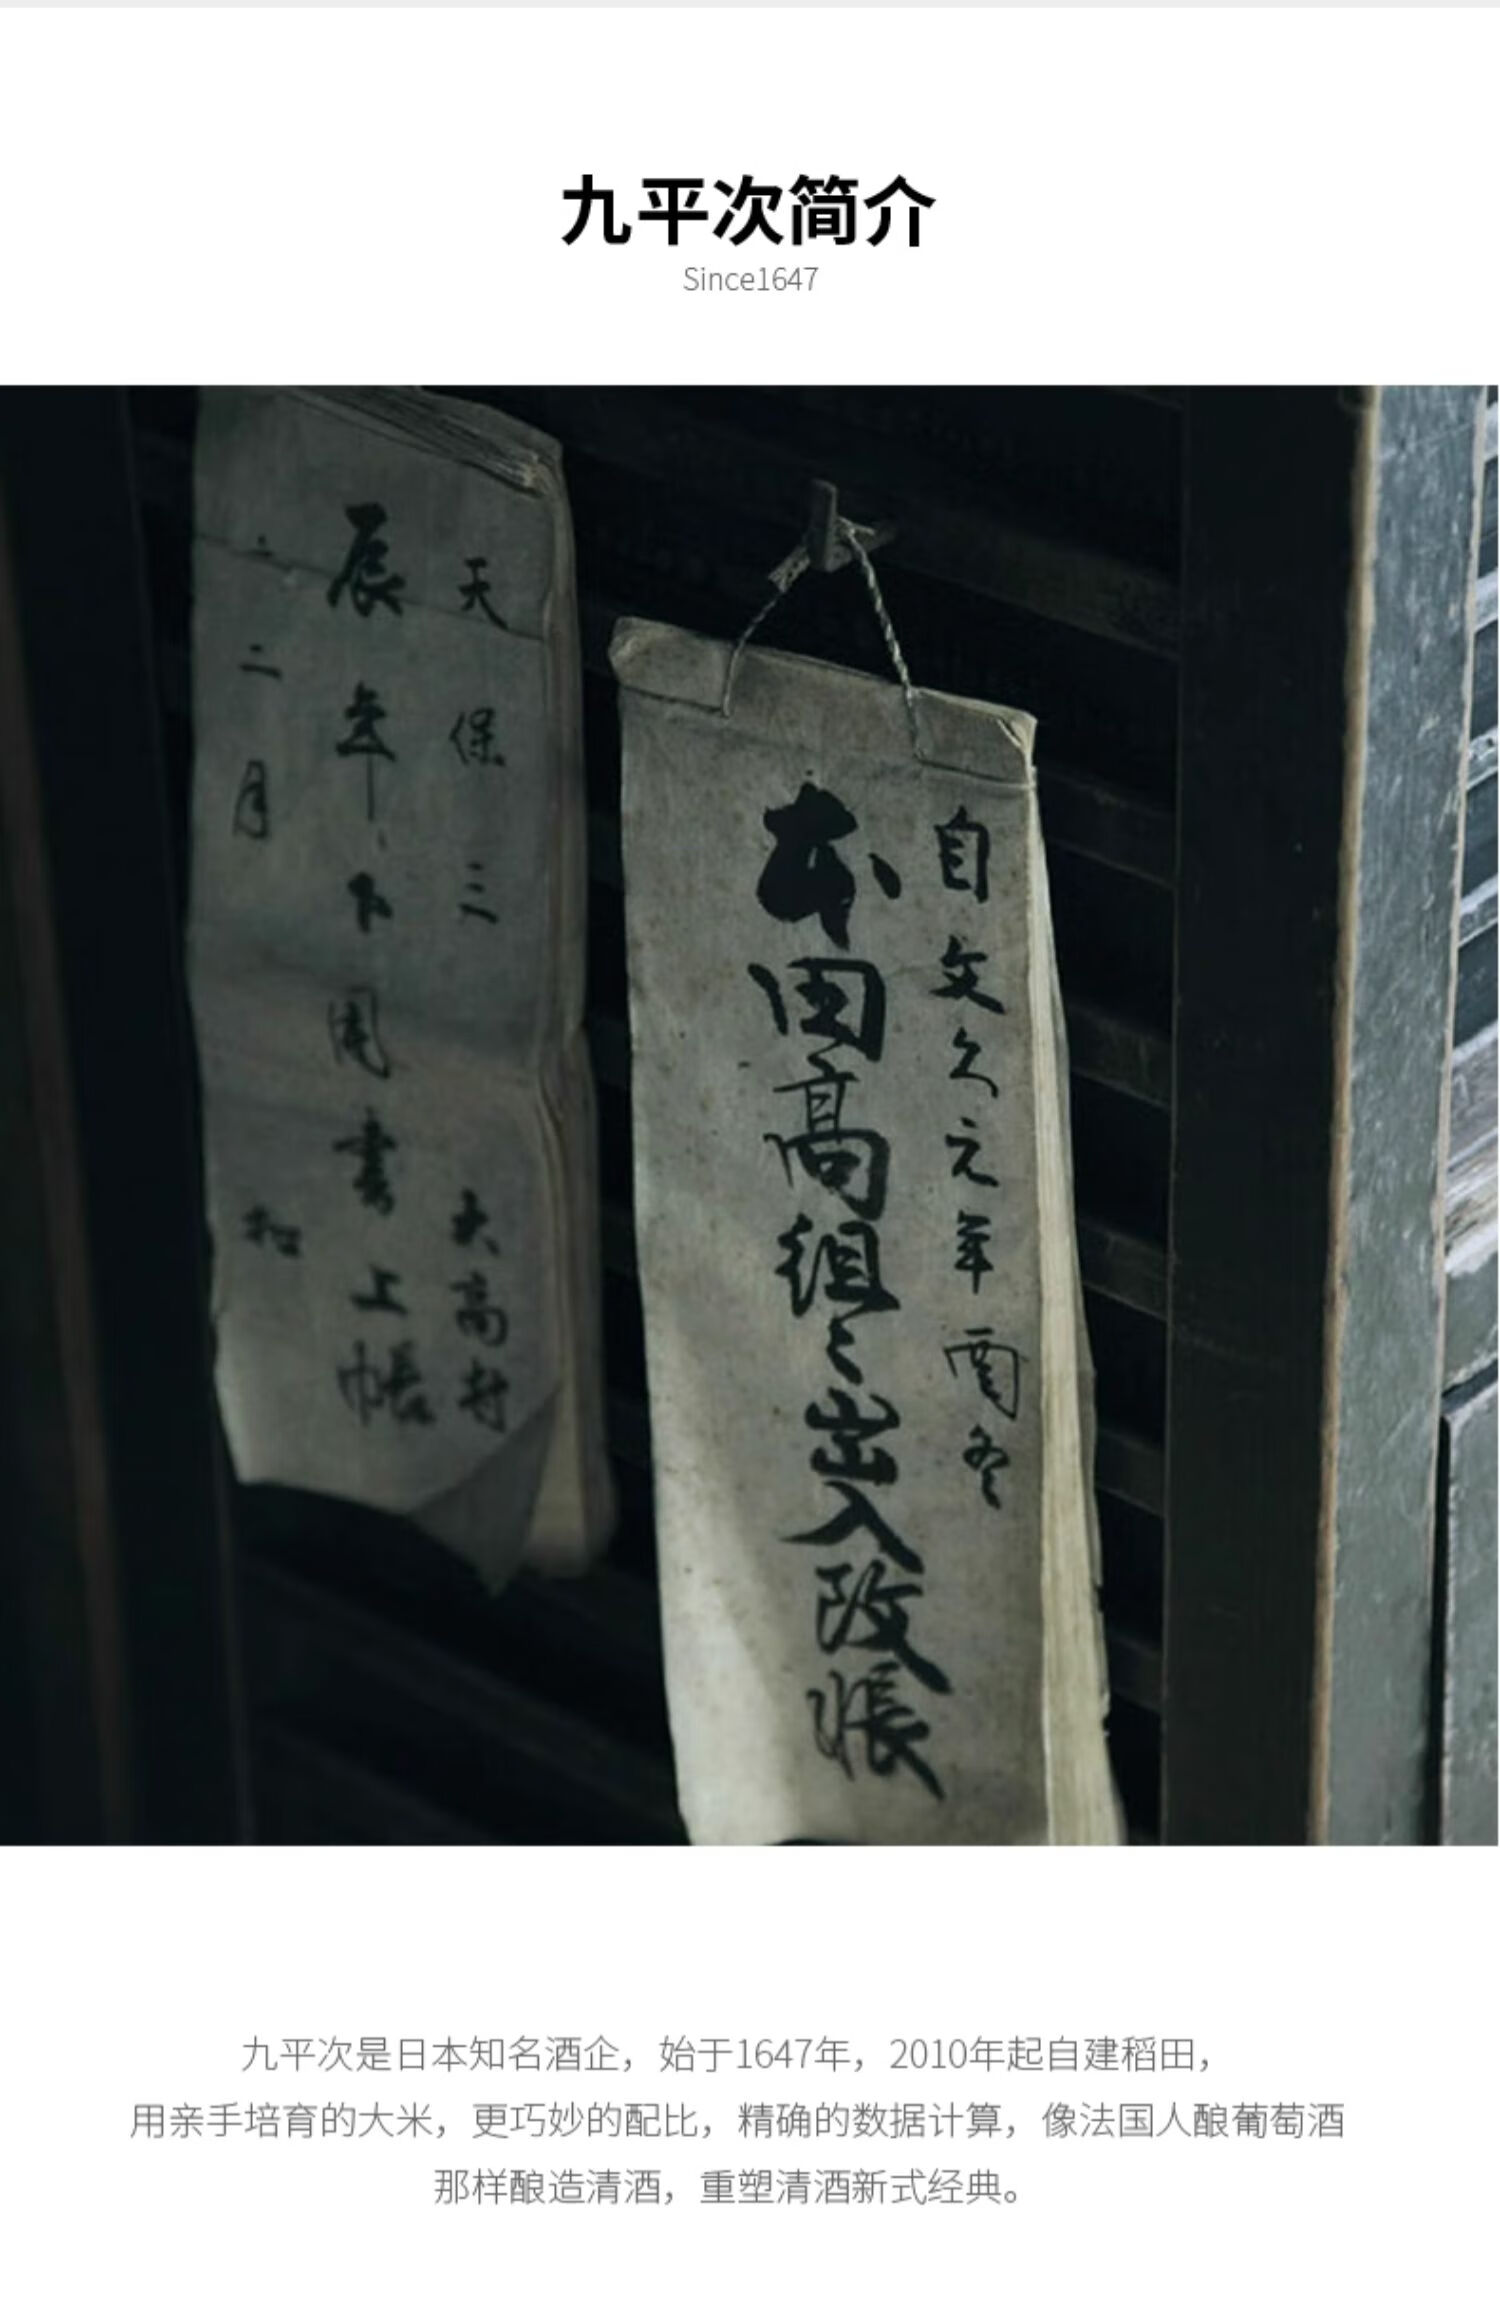 九平次简介
Since1647
天保三 大高村
辰年 下用書上帳
二月 扣
自文久元年酉冬
本田高組々出入改帳
九平次是日本知名酒企，始于1647年，2010年起自建稻田，
用亲手培育的大米，更巧妙的配比，精确的数据计算，像法国人酿葡萄酒
那样酿造清酒，重塑清酒新式经典。